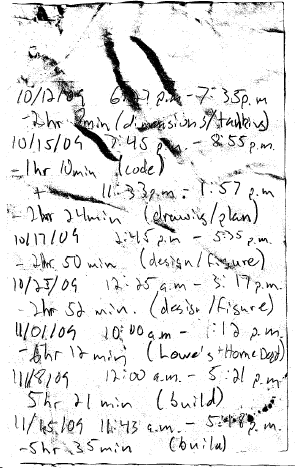 10/12/09 - 7:35 p.m
(dimensions/
10/15/09 7:45 p.m. - 8:55 p.m.
-1hr 10min (code)
+ 11:33 p.m. - 1:57 p.m
-2hr 24min (drawing/plan)
10/17/09 2:45 p.m - 5:35 p.m.
-2hr 50 min (design/figure)
10/25/09 12:25 a.m - 3:17 p.m.
-2hr 52 min. (design/figure)
11/01/09 10:00 a.m - 1:12 p.m.
hr 12 min (Lowe's + Home Depot)
11/8/09 12:00 a.m. - 5:21 p.m.
5hr 21 min (build)
11/15/09 11:43 a.m. - p.m.
-5hr 35min (build)